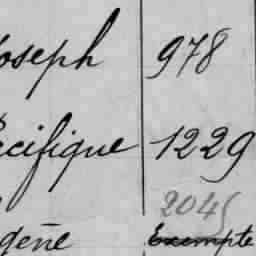 Joseph 978
Pacifique 1229
2045
Eugène Exempte